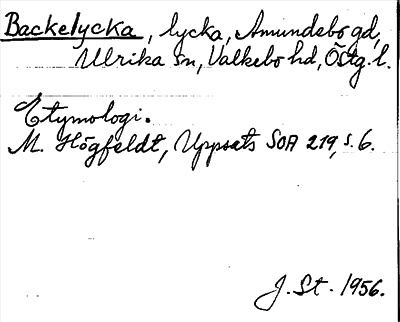 Backelycka, lycka, Amundebo gd,
Ulrika sn, Valkebo hd, Östg. l.
Etymologi.
M. Högfeldt, Uppsats SOA 219, s. 6.
J. St. 1956.